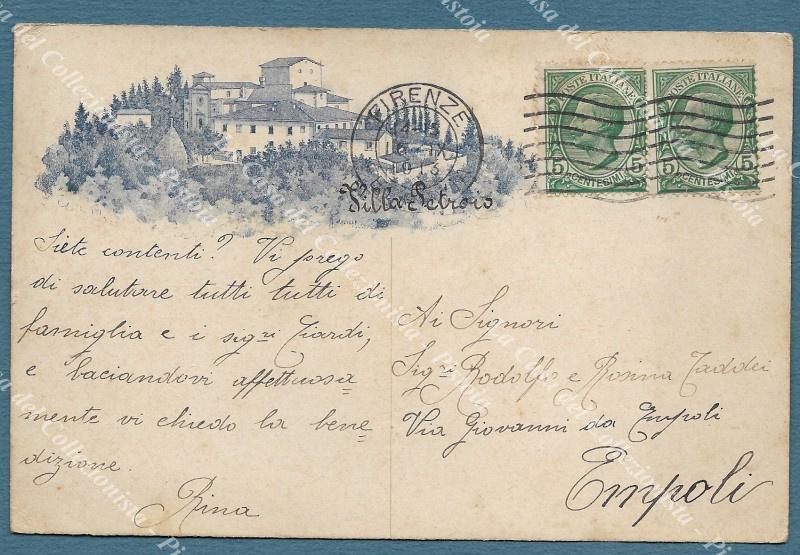 FIRENZE
POSTE ITALIANE
POSTE ITALIANE
5 CENTESIMI 5
5 CENTESIMI 5
Villa Petroio
Siete contenti? Vi prego
di salutare tutti tutti di
famiglia e i sigri Ciardi,
e baciandovi affettuosa=
mente vi chiedo la bene=
dizione.
Rina
Ai Signori
Sigri Rodolfo e Rosina Taddei
Via Giovanni da Empoli
Empoli
Casa del Collezionista - Pistoia